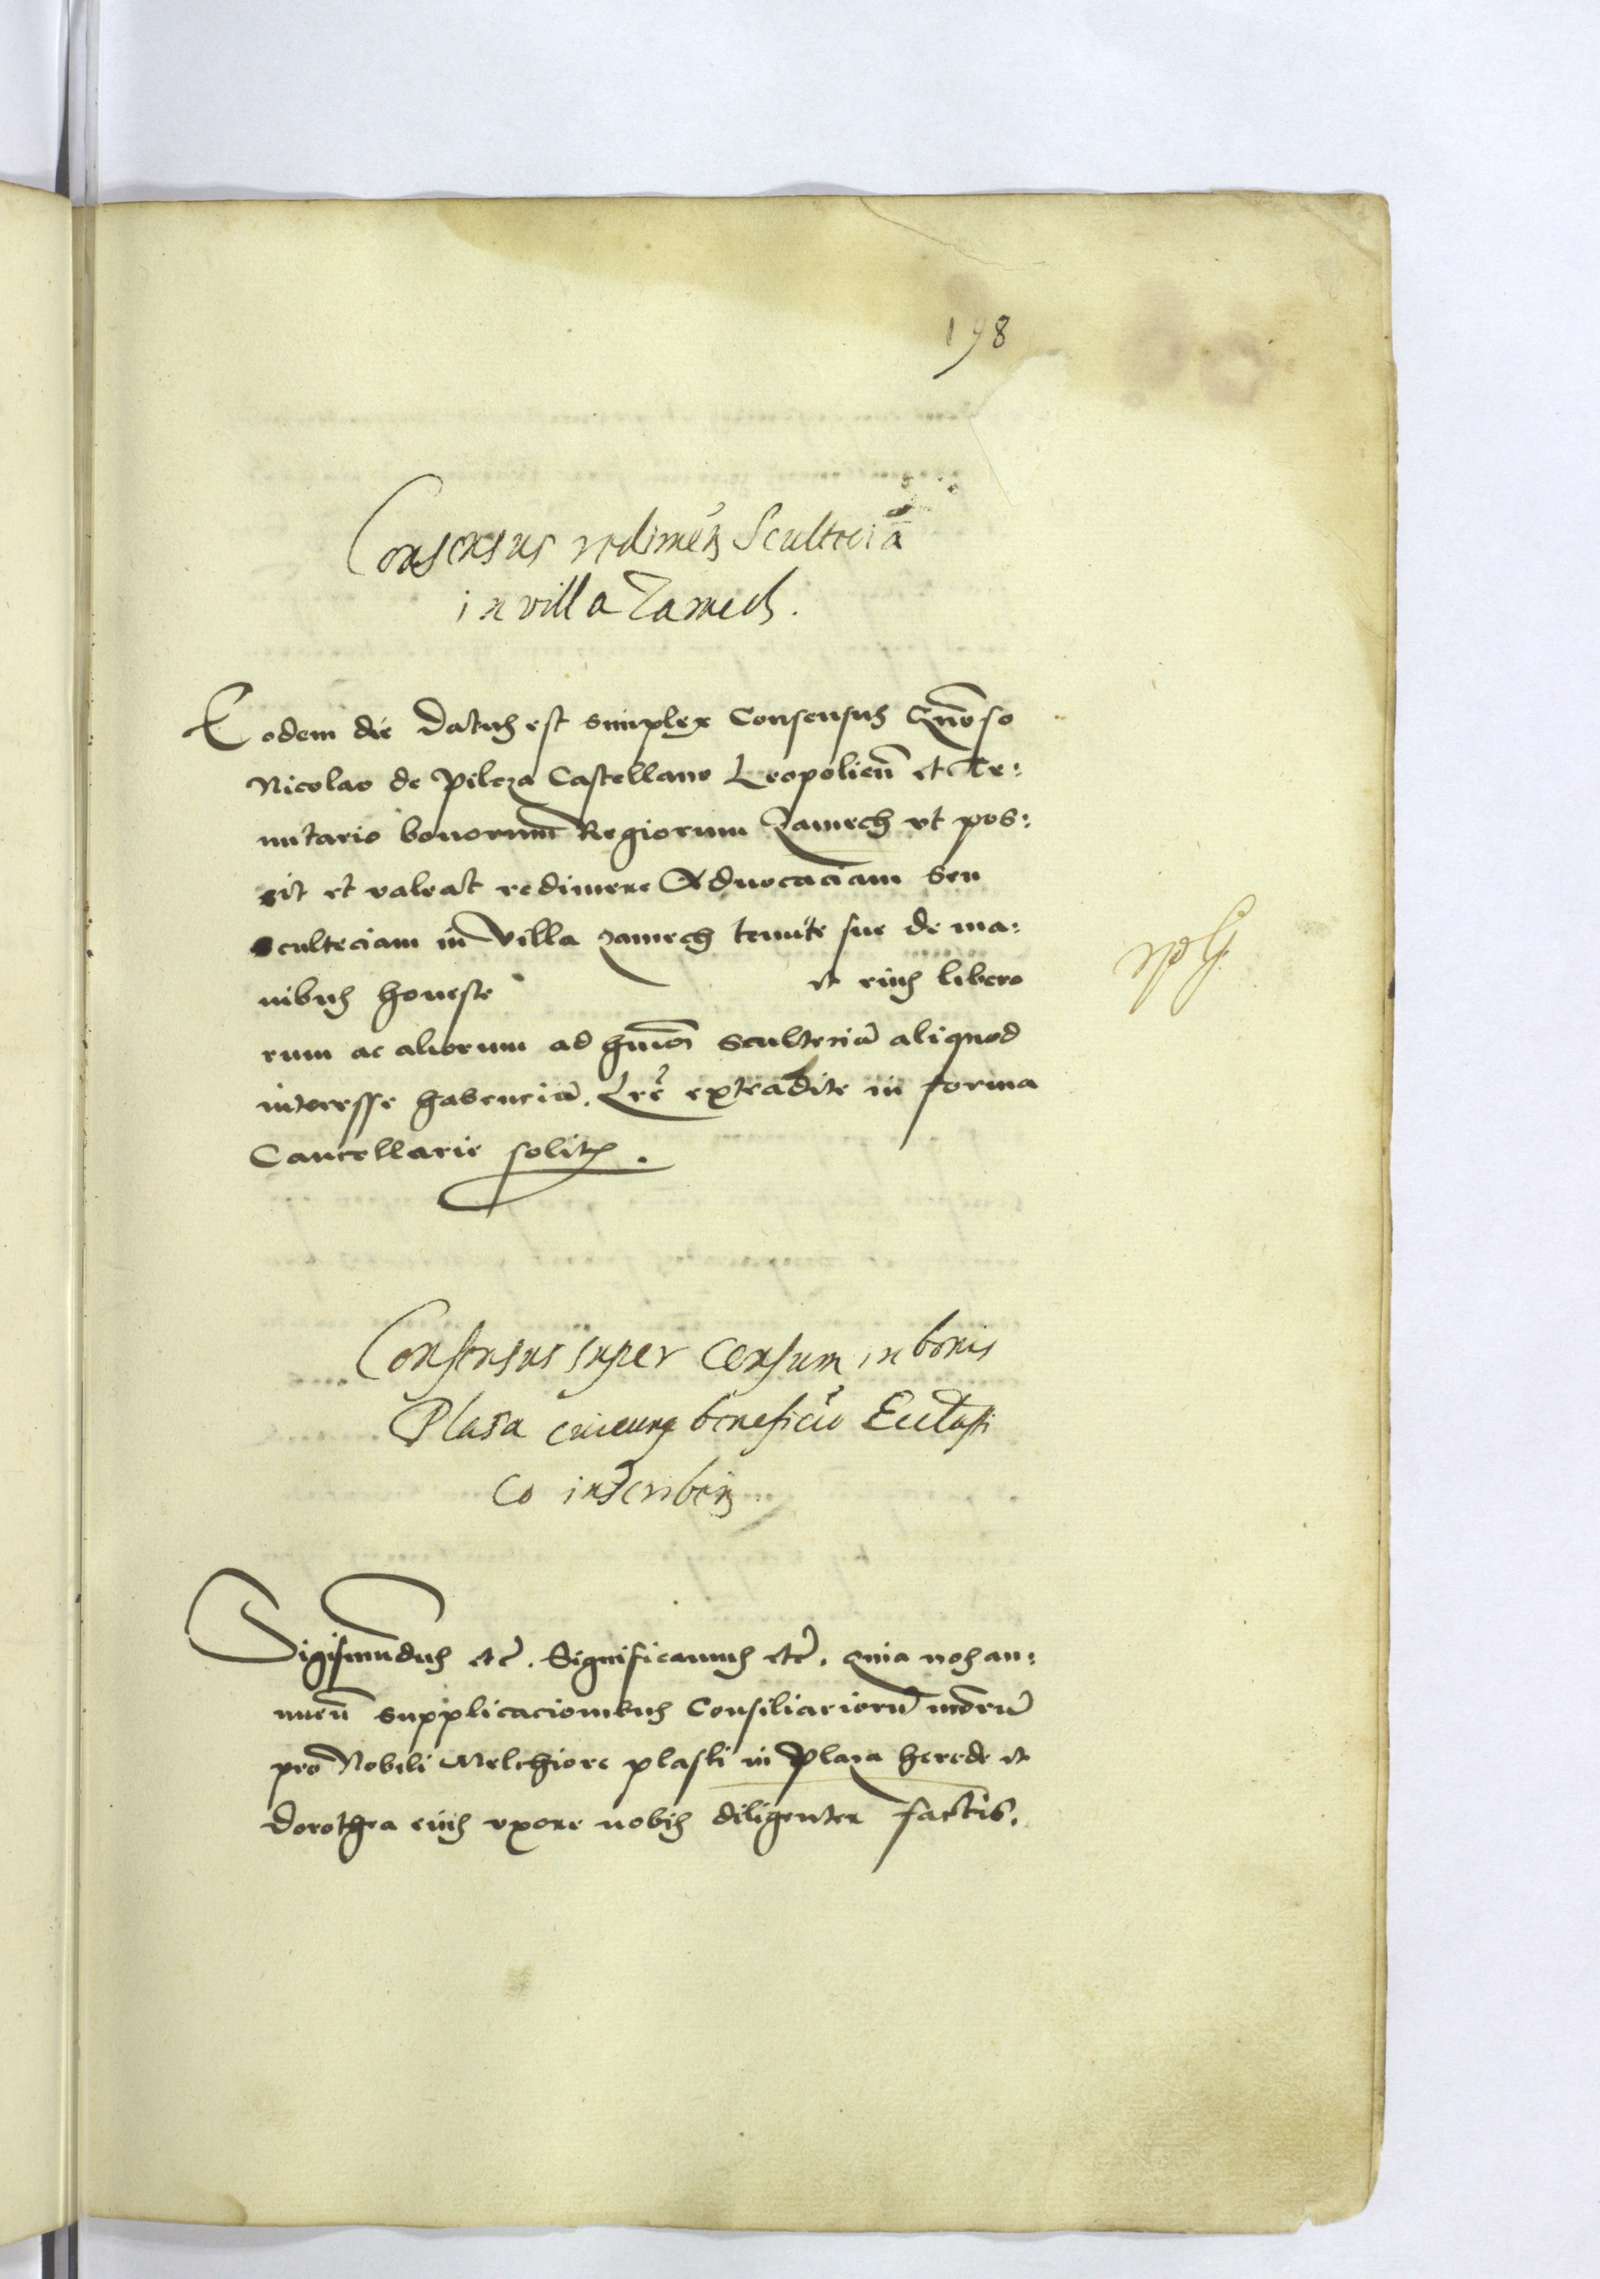 198
Consensus redimen Scultecia
in villa Zamech.
Eodem die Datus est simplex Consensus Gnoso
Nicolao de Pilcza Castellano Leopolien et Te:
nutario bonorum Regiorum Zamech vt pos:
sit et valeat redimere Aduocaciam seu
sculteciam in villa zamech tenute sue de ma:
nibus honeste et eius libero
rum ac aliorum ad hmoi scultecia aliquod
interesse habenciu. Lre extradite in forma
Cancellarie solita.
Consensus super Censum in bonis
Plaza cuicunque beneficio Ecclasti
co inscriben
Sigismundus etc. Significamus etc. Quia nos an:
nuen supplicacionibus Consiliarioru nroru
pro Nobili Melchiore plaski in Plaza herede et
Dorothea eius vxore nobis diligenter factis.